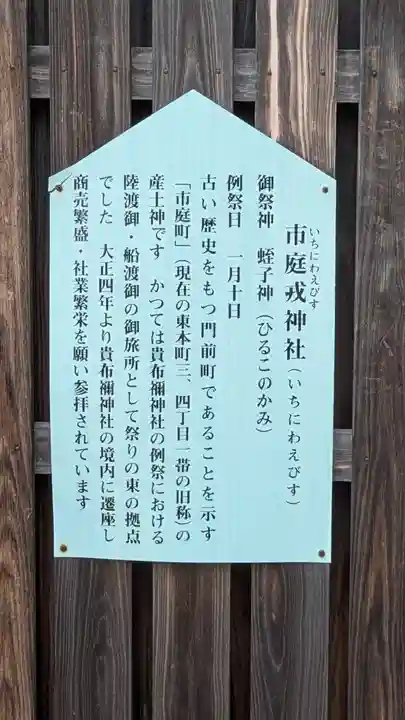 いちにわえびす
市庭戎神社(いちにわえびす)
御祭神　蛭子神(ひるこのかみ)
例祭日　一月十日
古い歴史をもつ門前町であることを示す
「市庭町」(現在の東本町三、四丁目一帯の旧称)の
産土神です　かつては貴布禰神社の例祭における
陸渡御・船渡御の御旅所として祭りの東の拠点
でした　大正四年より貴布禰神社の境内に遷座し
商売繁盛・社業繁栄を願い参拝されています